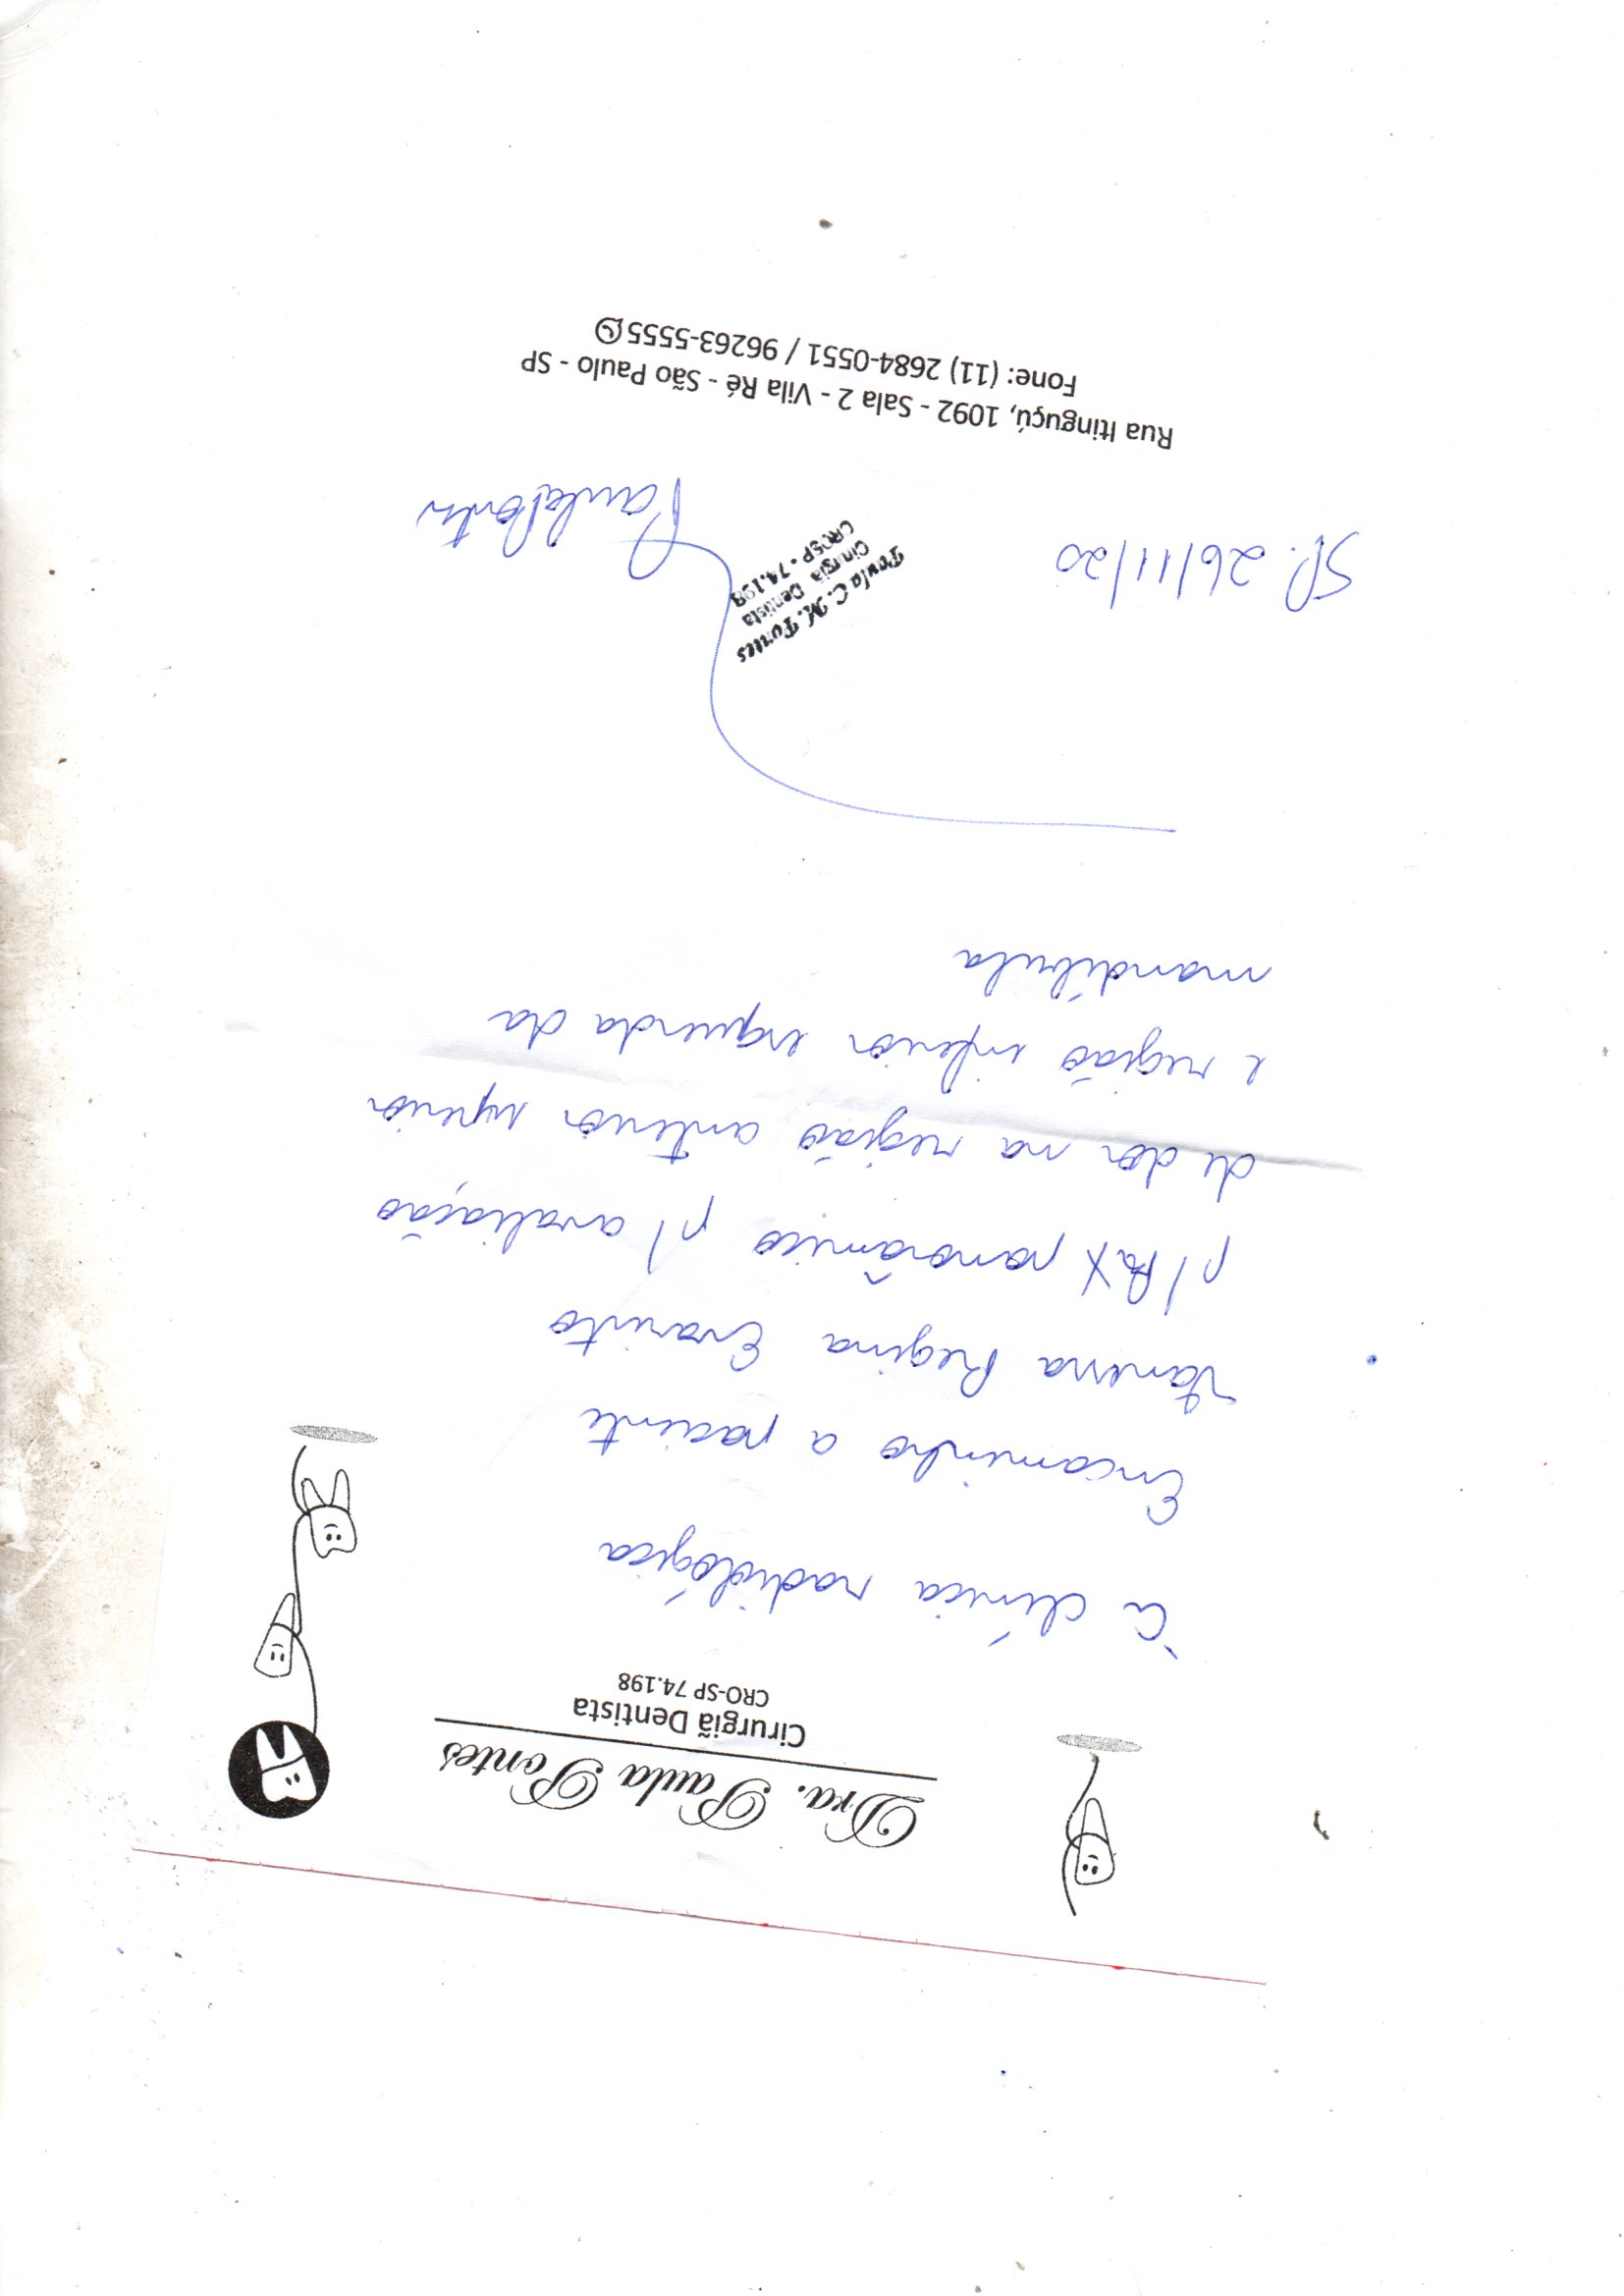 Dra. Paula Pontes
Cirurgiã Dentista
CRO-SP 74.198
À clínica radiológica
Encaminho a paciente
Vanessa Regina Evaristo
p/ RX panorâmico p/ avaliação
de dor na região anterior superior
e região inferior esquerda da
mandíbula
Paula C. M. Pontes
Cirurgiã Dentista
CROSP - 74.198
SP. 26/11/20
Paula Pontes
Rua Itinguçú, 1092 - Sala 2 - Vila Ré - São Paulo - SP
Fone: (11) 2684-0551 / 96263-5555